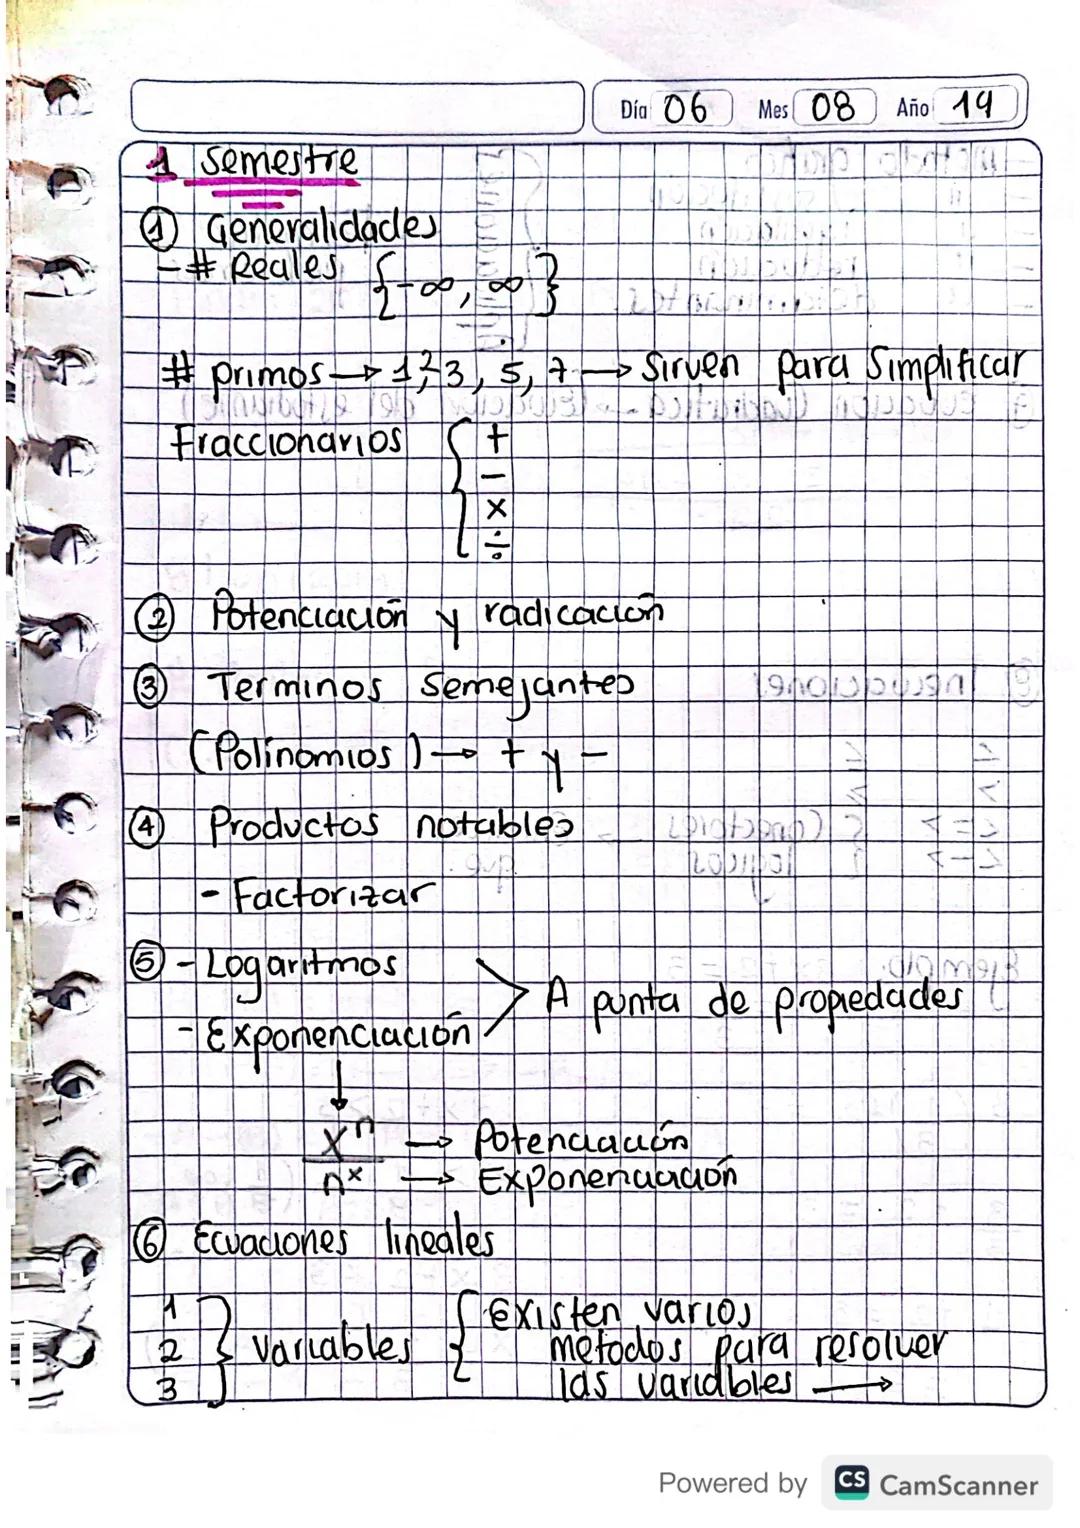 Día 06 Mes 08 Año 19
1 Semestre
① Generalidades
- # Reales {-∞, ∞}
# primos → 1, 2, 3, 5, 7 → Sirven para Simplificar
Fraccionarios { +
-
x
÷
② Potenciación y radicación
③ Terminos Semejantes
(Polinomios) → + y -
④ Productos notables
- Factorizar
⑤ - Logaritmos
- Exponenciación > A punta de propiedades
↓
xⁿ → Potenciación
nˣ → Exponenciación
⑥ Ecuaciones lineales
1
2 } Variables { existen varios
3 metodos para resolver
las variables →
Powered by CS CamScanner